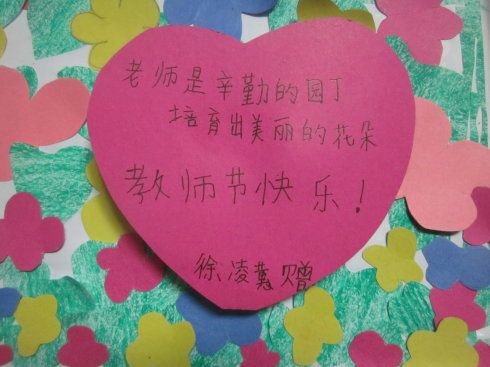 老师是辛勤的园丁
培育出美丽的花朵
教师节快乐！
徐凌 赠